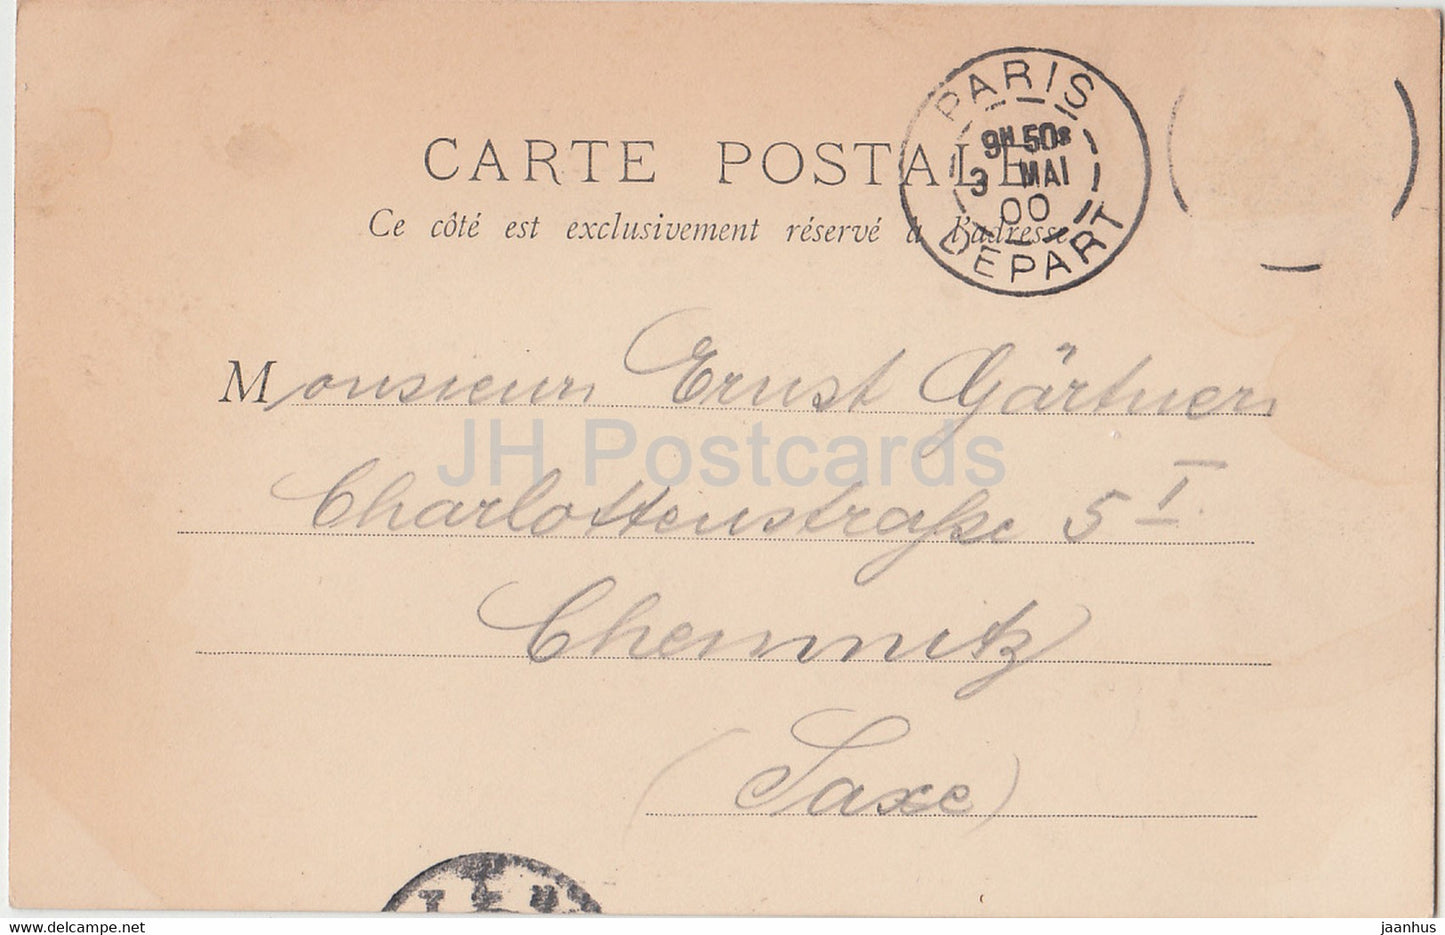 PARIS
9H 50S
3 MAI
00
DEPART
CARTE POSTALE
Ce côté est exclusivement réservé à l'adresse
Monsieur Ernst Gärtner
JH Postcards
Charlottenstraße 5 I
Chemnitz
(Saxe)
www.delcampe.net
jaanhus